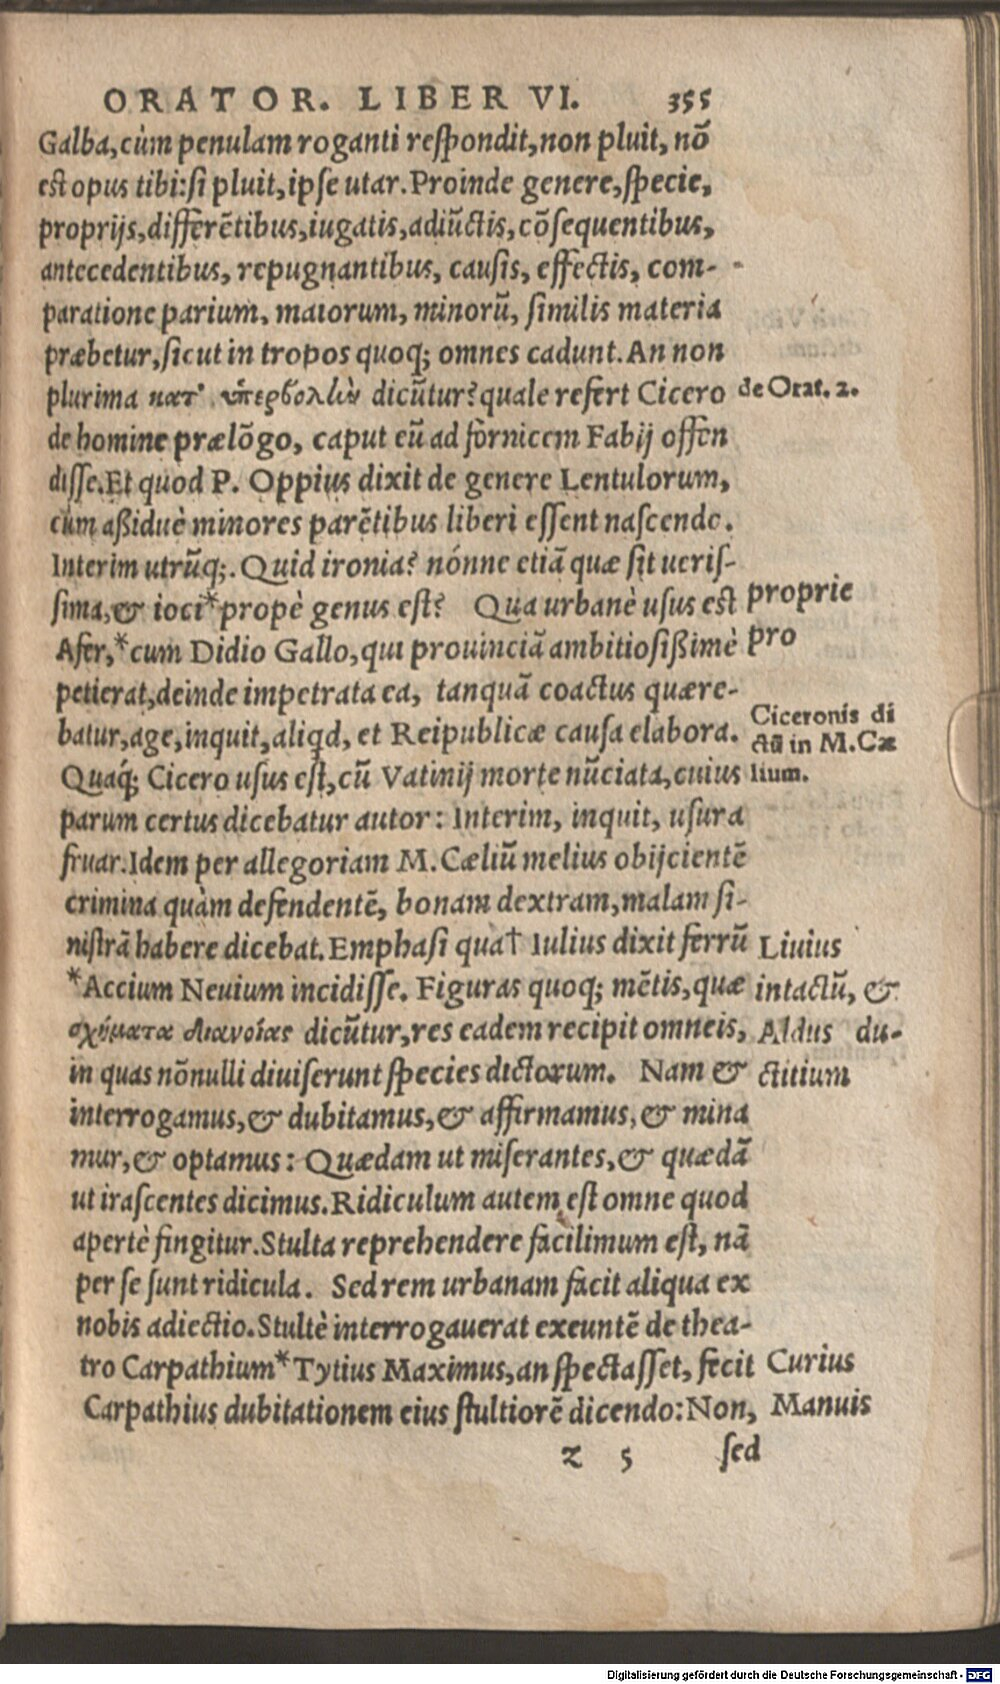 ORATOR. LIBER VI. 355
Galba, cùm penulam roganti respondit, non pluit, nõ
est opus tibi: si pluit, ipse utar. Proinde genere, specie,
proprijs, differẽtibus, iugatis, adiũctis, cõsequentibus,
antecedentibus, repugnantibus, causis, effectis, com-
paratione parium, maiorum, minorũ, similis materia
præbetur, sicut in tropos quoq; omnes cadunt. An non
plurima κατ' ὑπερβολὴν dicũtur? quale refert Cicero
de Orat. 2.
de homine prælõgo, caput eũ ad fornicem Fabij offen
disse. Et quod P. Oppius dixit de genere Lentulorum,
cùm aßiduè minores parẽtibus liberi essent nascendo.
Interim utrũq;. Quid ironia? nónne etiã quæ sit ueris-
sima, & ioci* propè genus est? Qua urbanè usus est
proprie
Afer, * cum Didio Gallo, qui prouinciã ambitiosißimè
pro
petierat, deinde impetrata ea, tanquã coactus quære-
batur, age, inquit, aliqd, et Reipublicæ causa elabora.
Ciceronis di
ctũ in M. Cæ
lium.
Quaq́; Cicero usus est, cũ Vatinij morte nũciata, cuius
parum certus dicebatur autor: Interim, inquit, usura
fruar. Idem per allegoriam M. Cæliũ melius obijcientẽ
crimina quàm defendentẽ, bonam dextram, malam si-
nistrã habere dicebat. Emphasi qua† Iulius dixit ferrũ
Liuius
*Accium Neuium incidisse. Figuras quoq; mẽtis, quæ
intactũ, &
σχήματα διανοίας dicũtur, res eadem recipit omneis,
Aldus du-
in quas nõnulli diuiserunt species dictorum. Nam &
ctitium
interrogamus, & dubitamus, & affirmamus, & mina
mur, & optamus: Quædam ut miserantes, & quædã
ut irascentes dicimus. Ridiculum autem est omne quod
apertè fingitur. Stulta reprehendere facilimum est, nã
per se sunt ridicula. Sed rem urbanam facit aliqua ex
nobis adiectio. Stultè interrogauerat exeuntẽ de thea-
tro Carpathium* Tytius Maximus, an spectasset, fecit
Curius
Carpathius dubitationem eius stultiorẽ dicendo: Non,
Manuis
z 5 sed
Digitalisierung gefördert durch die Deutsche Forschungsgemeinschaft - DFG